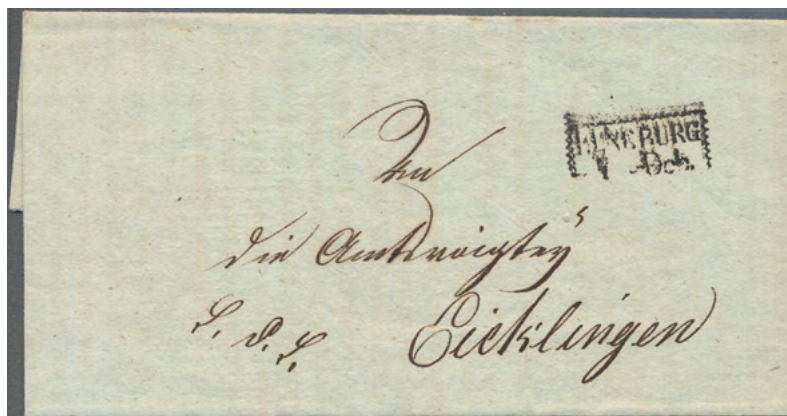 LUNEBURG
7 Dch.
An
die Amtsvoigtey
Eicklingen